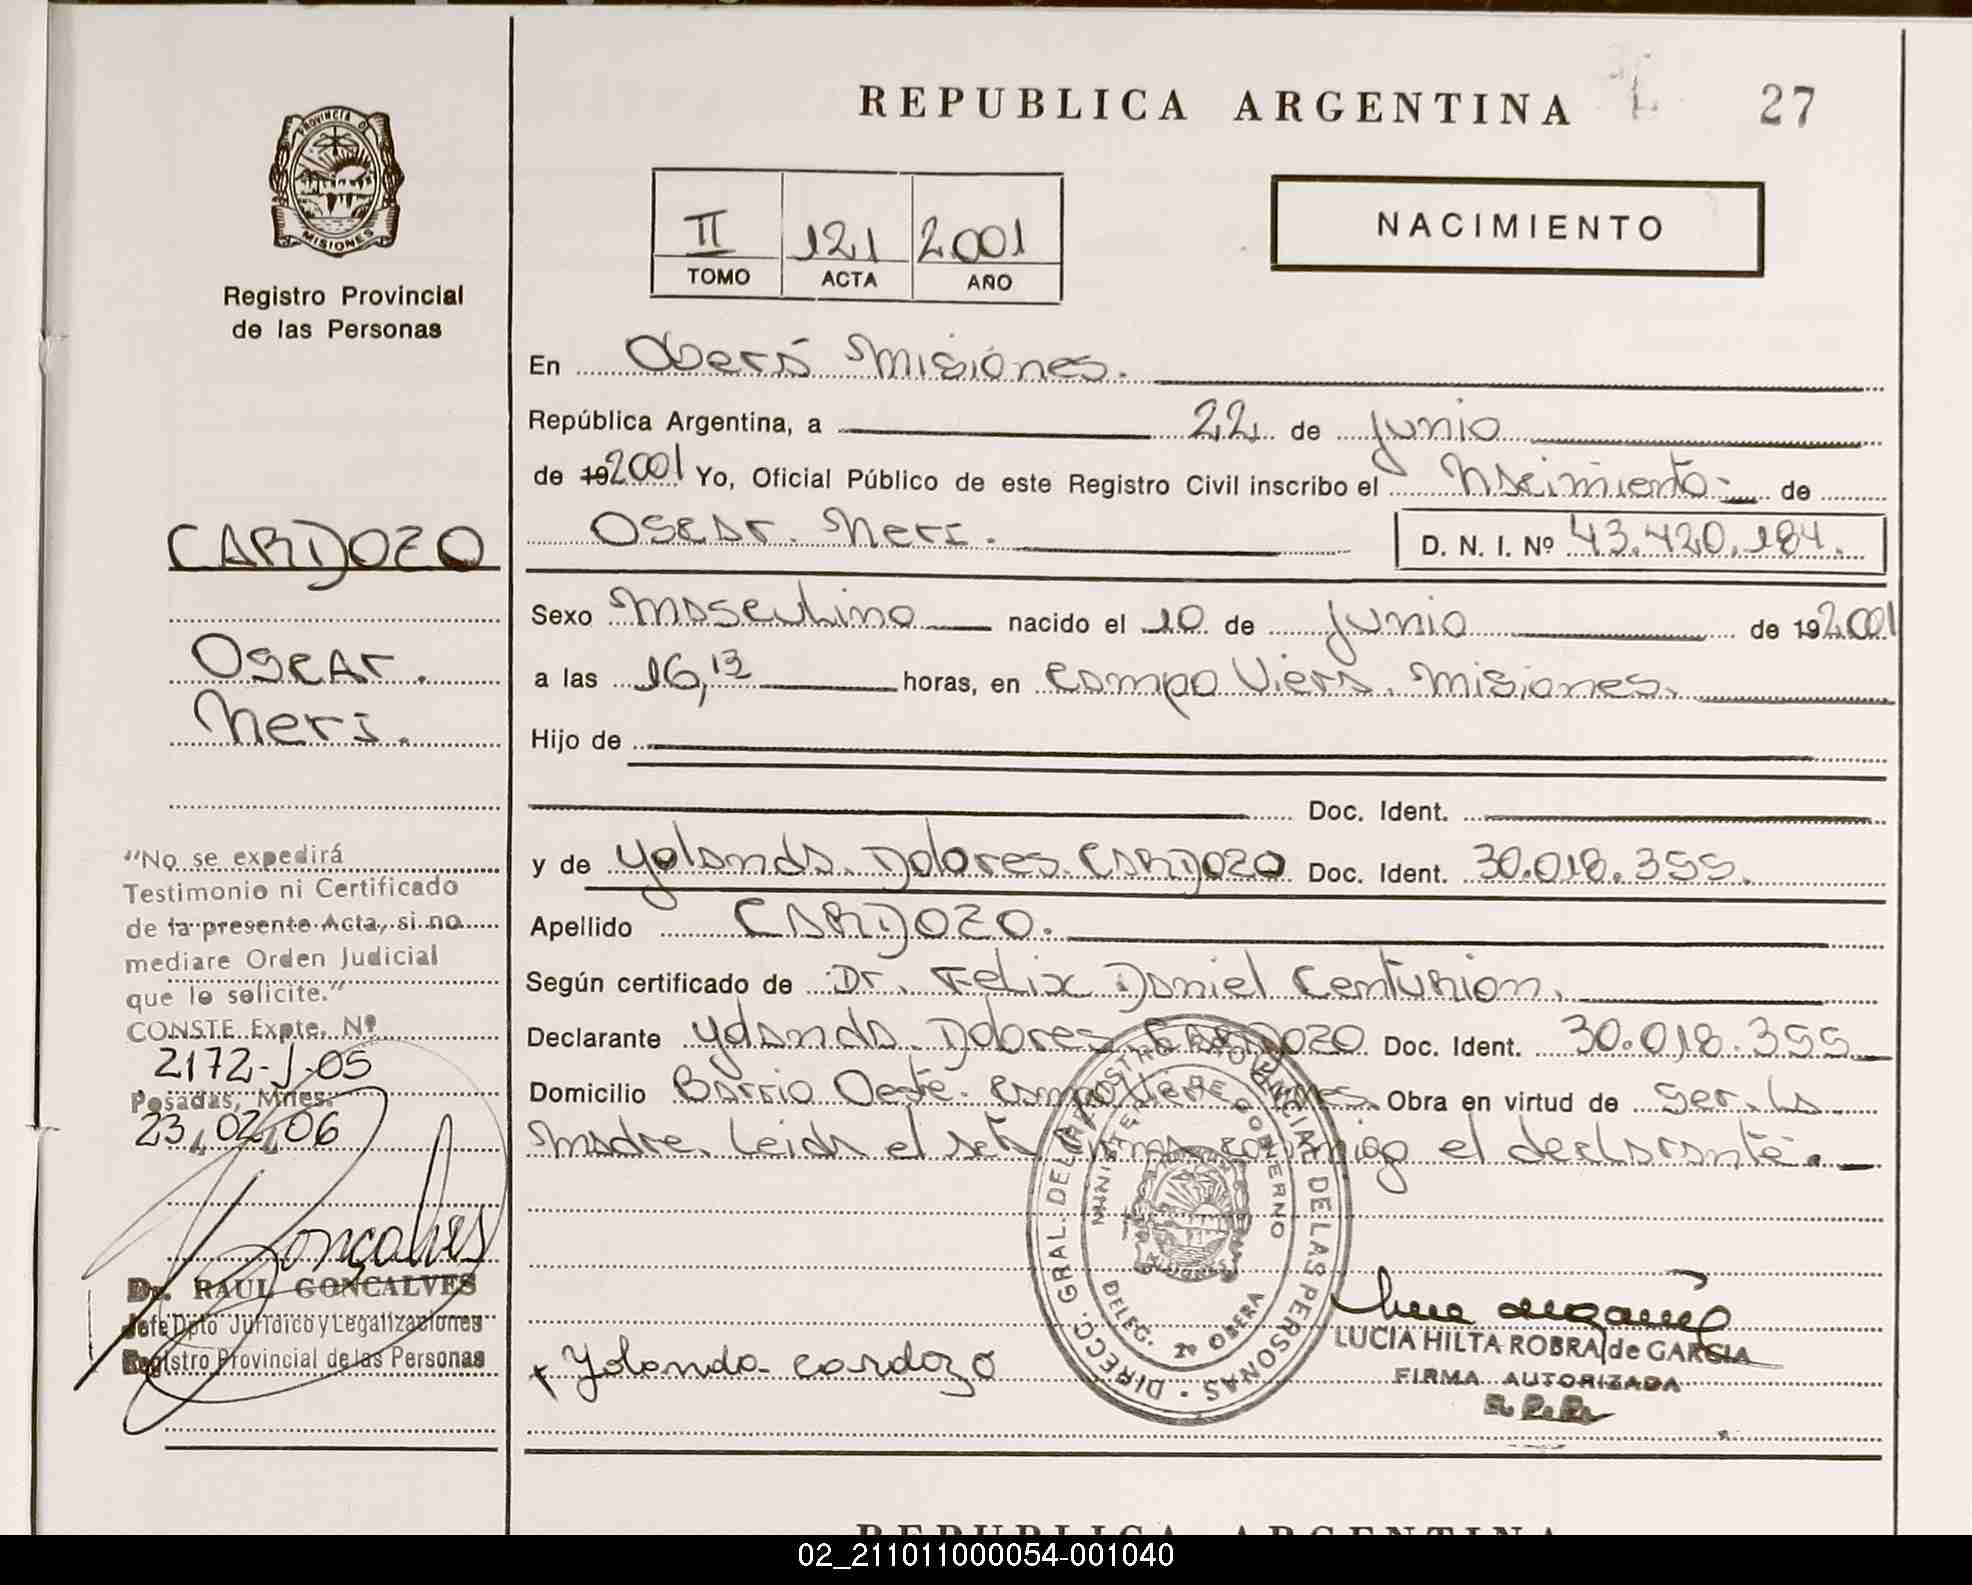 REPUBLICA ARGENTINA
27
PROVINCIA DE
MISIONES
Registro Provincial
de las Personas
II 121 2001
TOMO ACTA AÑO
NACIMIENTO
En Oberá Misiones.
República Argentina, a 22 de Junio
de 192001 Yo, Oficial Público de este Registro Civil inscribo el Nacimiento de
Oscar Neri. D. N. I. Nº 43.420.184.
Sexo Masculino nacido el 10 de Junio de 192001
a las 16,13 horas, en Campo Viera. Misiones.
Hijo de
Doc. Ident.
y de Yolanda Dolores CARDOZO Doc. Ident. 30.018.355.
Apellido CARDOZO.
Según certificado de Dr. Felix Daniel Centurion.
Declarante Yolanda Dolores CARDOZO Doc. Ident. 30.018.355
Domicilio Barrio Oeste. Campo Viera Mnes. Obra en virtud de ser la
madre. Leida el acta firma conmigo el declarante.
CARDOZO
Oscar.
Neri.
"No se expedirá
Testimonio ni Certificado
de la presente Acta, si no
mediare Orden Judicial
que lo solicite."
CONSTE Expte. Nº
2172-J-05
Posadas, Mnes.
23, 02, 06
Goncalves
Dr. RAUL GONCALVES
Jefe Dpto Jurídico y Legalizaciones
Registro Provincial de las Personas
Yolanda cardozo
DIRECC. GRAL. DEL REGISTRO PROVINCIAL DE LAS PERSONAS
MINISTERIO DE GOBIERNO
MISIONES
DELEG. 2º OBERA
LUCIA HILTA ROBRA de GARCIA
FIRMA AUTORIZADA
R.P.P.
REPUBLICA ARGENTINA
02_211011000054-001040